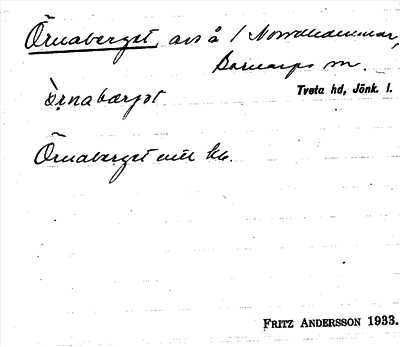 Örnaberget, avs å 1 Norrahammar,
Barnarps sn.
Tveta hd, Jönk. l.
Örnabærjət
Örnaberget enl kb.
FRITZ ANDERSSON 1933.